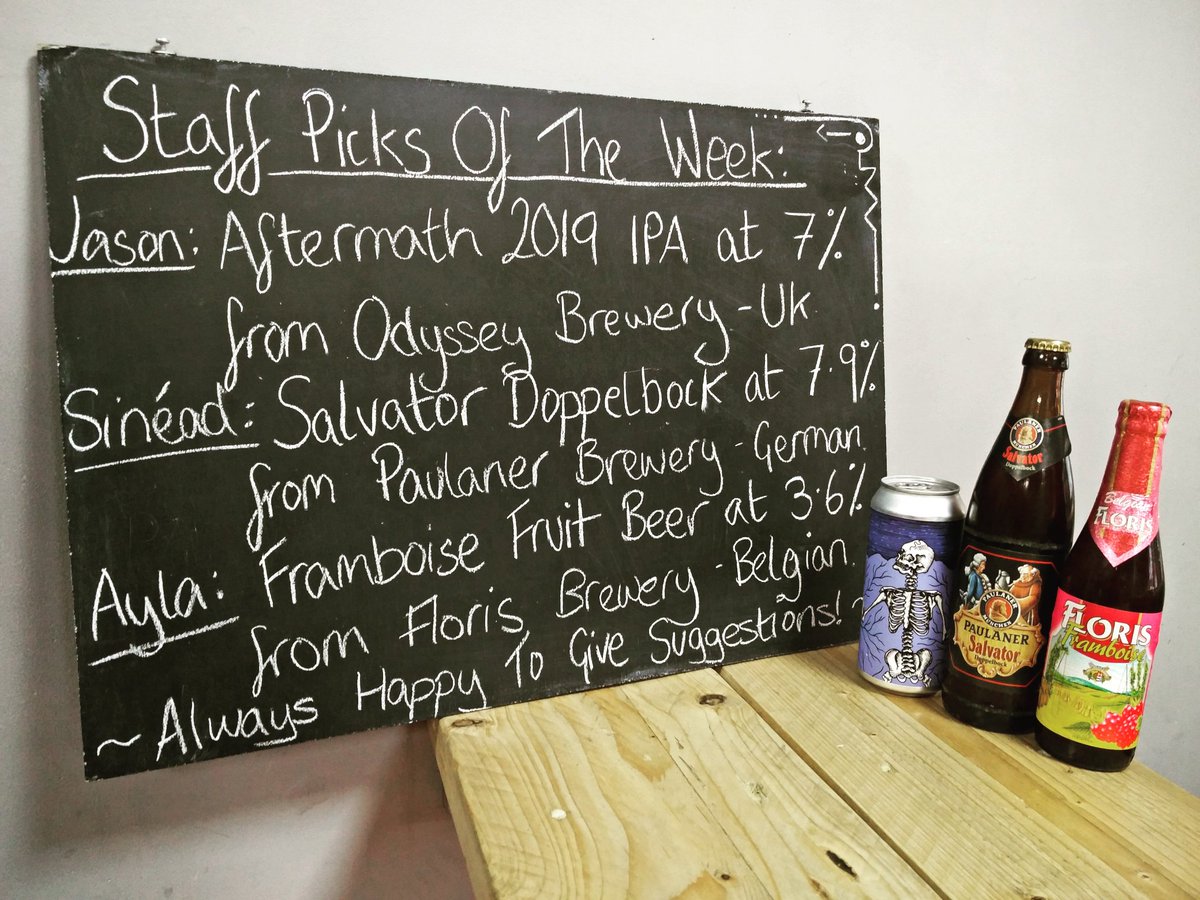 Staff Picks Of The Week:
Jason: Aftermath 2019 IPA at 7%
from Odyssey Brewery - Uk
Sinéad: Salvator Doppelbock at 7.9%
from Paulaner Brewery - German
Ayla: Framboise Fruit Beer at 3.6%
from Floris Brewery - Belgian.
~ Always Happy To Give Suggestions! ~
PAULANER
MÜNCHEN
Salvator
Doppelbock
PAULANER
MÜNCHEN
PAULANER
Salvator
Doppelbock
Belgian
FLORIS
FLORIS
Framboise